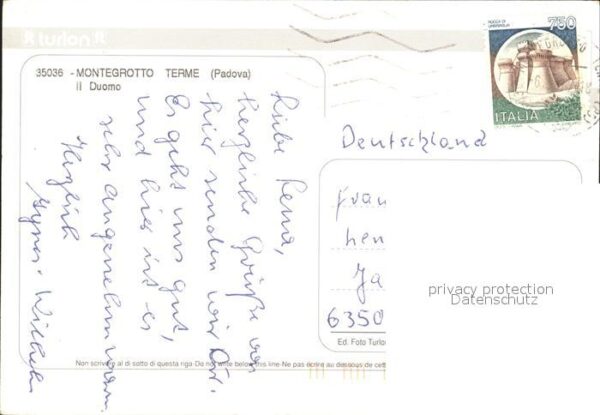 turlon
750
ROCCA DI URBISAGLIA
ITALIA
35036 - MONTEGROTTO TERME (Padova)
Il Duomo
Liebe Lena,
herzliche Grüße von
hier senden wir Dir.
Es geht uns gut,
und hier ist es
sehr angenehm warm.
Herzlich
Wilhelm
Deutschland
Frau
hen
Ja
6350
privacy protection
Datenschutz
Ed. Foto Turlon
Non scrivere al di sotto di questa riga-Do not write below this line-Ne pas écrire au dessous de cette